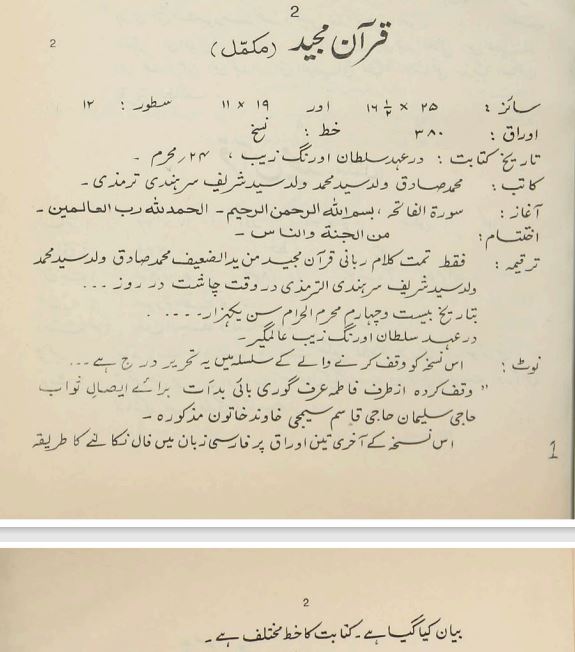 2
2
قرآن مجید (مکمّل)
سائز : ۲۵ × ½ ۱۶ اور ۱۹ × ۱۱ سطور : ۱۲
اوراق : ۳۸۰ خط : نسخ
تاریخ کتابت : در عہد سلطان اورنگ زیب ، ۲۴؍ محرم ۔
کاتب : محمد صادق ولد سید محمد ولد سید شریف سرہندی ترمذی ۔
آغاز : سورة الفاتحہ ، بسم الله الرحمن الرحیم ۔ الحمد لله رب العالمین ۔
اختتام : من الجنة والناس ۔
ترقیمہ : فقط تمت کلام ربانی قرآن مجید من ید الضعیف محمد صادق ولد سید محمد
ولد سید شریف سرہندی الترمذی در وقت چاشت در روز ...
بتاریخ بیست وچہارم محرم الحرام سن یکہزار .... .
در عہد سلطان اورنگ زیب عالمگیر ۔
نوٹ : اس نسخہ کو وقف کرنے والے کے سلسلہ میں یہ تحریر درج ہے ...
" وقف کردہ از طرف فاطمہ عرف گوری بائی بدات برائے ایصال ثواب
حاجی سلیمان حاجی قاسم سیمجی خاوند خاتون مذکورہ ۔
اس نسخہ کے آخری تین اوراق پر فارسی زبان میں فال نکالنے کا طریقہ
1
2
بیان کیا گیا ہے ۔ کتابت کا خط مختلف ہے ۔